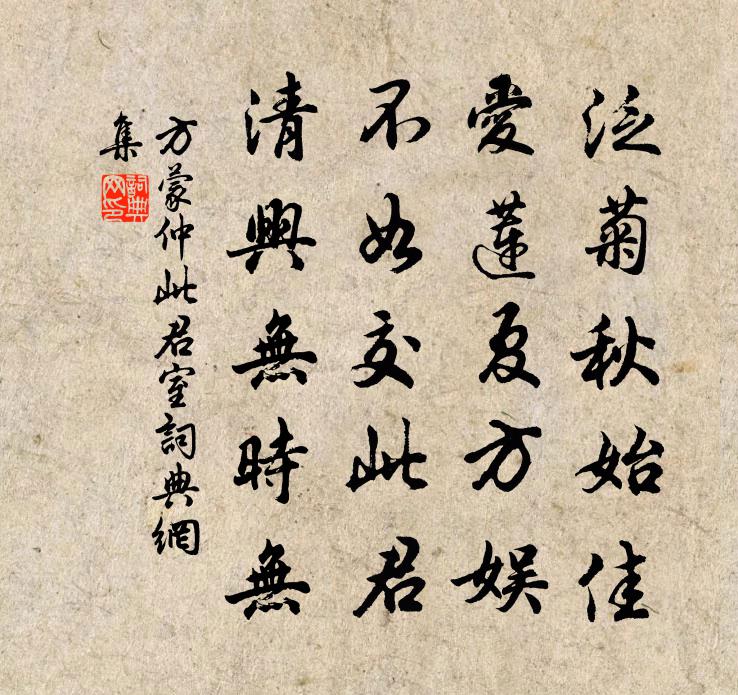 泛菊秋始佳
愛蓮夏方娱
不如交此君
清興無時無
方蒙仲此君室詞典網
集
詞典
网印